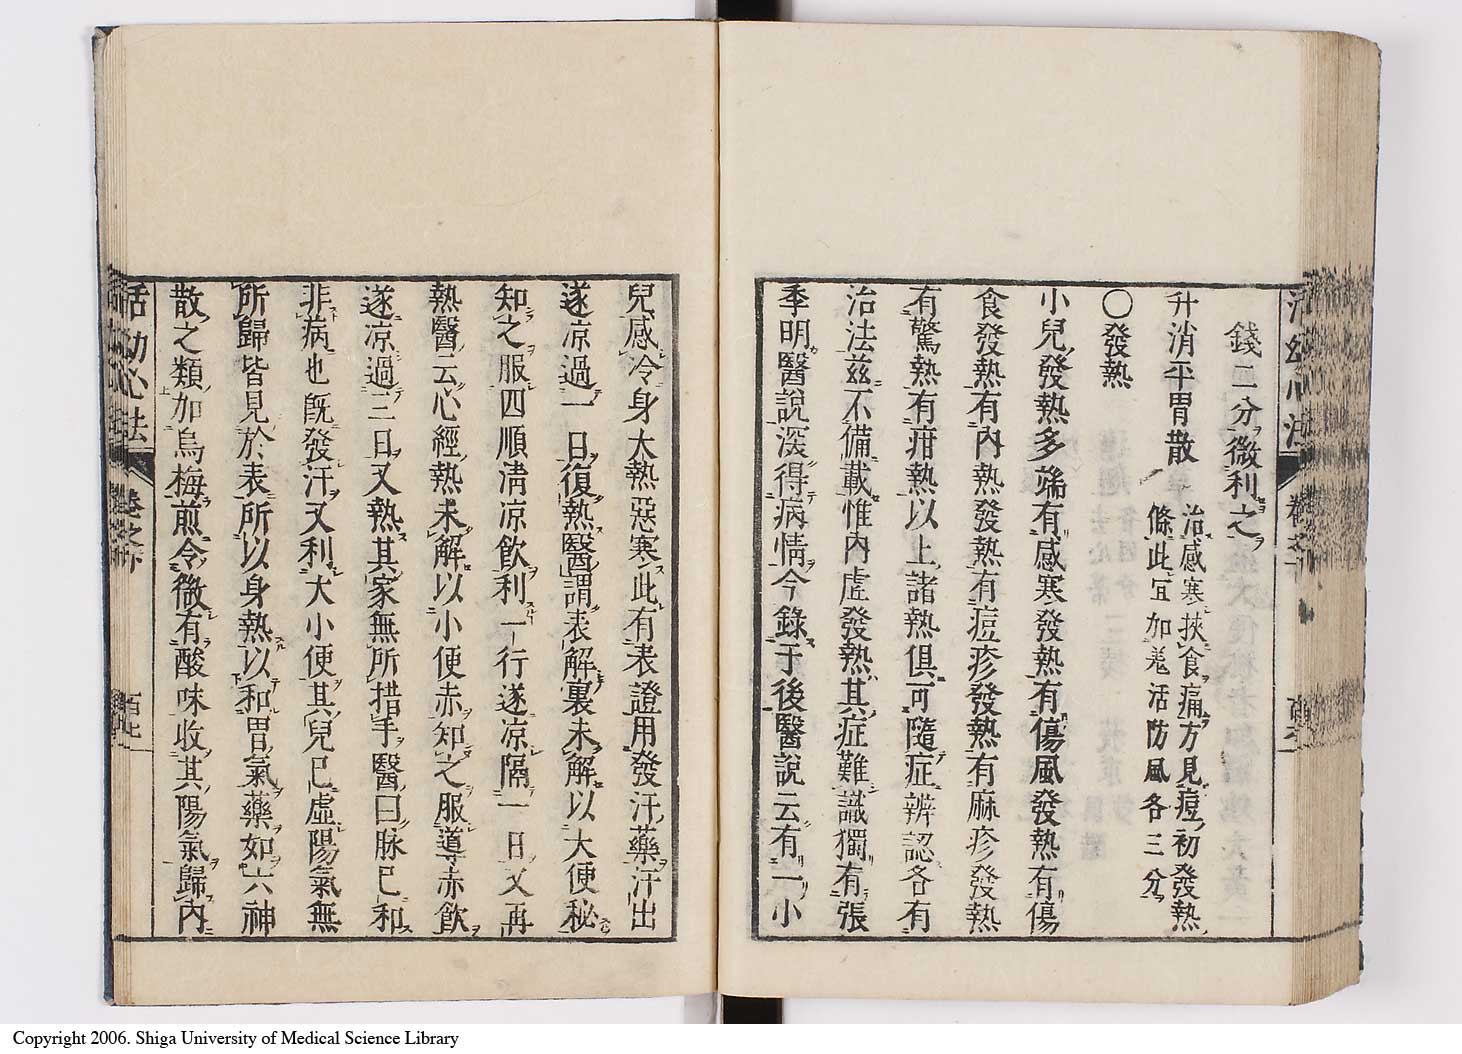 錢二分微利之
升消平胃散
治感寒挾食痛方見痘初發熱
條此宜加羗活防風各三分
〇發熱
小兒發熱多端有感寒發熱有傷風發熱有傷
食發熱有內熱發熱有痘疹發熱有麻疹發熱
有驚熱有疳熱以上諸熱俱可隨症辨認各有
治法玆不備載惟內虛發熱其症難識獨有張
季明醫說深得病情今錄于後醫說云有一小
兒感冷身大熱惡寒此有表證用發汗藥汗出
遂凉過一日復熱醫謂表解裏未解以大便秘
知之服四順清凉飲利一行遂凉隔一日又再
熱醫云心經熱未解以小便赤知之服導赤飲
遂凉過三日又熱其家無所措手醫曰脉已和
非病也旣發汗又利大小便其兒已虛陽氣無
所歸皆見於表所以身熱以和胃氣藥如六神
散之類加烏梅煎令微有酸味收其陽氣歸內
活幼心法
卷之下
Copyright 2006. Shiga University of Medical Science Library